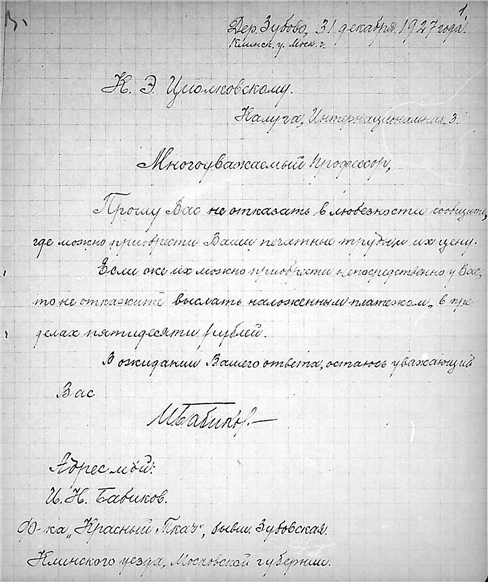 1
Дер. Зубово, 31 декабря 1927 года.
Клинск. у. Моск. г.
К. Э. Циолковскому.
Калуга, Интернациональная 3.
Многоуважаемый профессор,
Прошу Вас не отказать в любезности сообщить,
где можно приобрести Ваши печатные труды и их цену.
Если же их можно приобрести непосредственно у Вас,
то не откажите выслать наложенным платежом, в пре-
делах пятидесяти рублей.
В ожидании Вашего ответа, остаюсь уважающий
Вас
ИБабик
Адрес мой:
И. Н. Бабиков.
Ф-ка „Красный Ткач“, бывш. Зубовская.
Клинского уезда, Московской губернии.